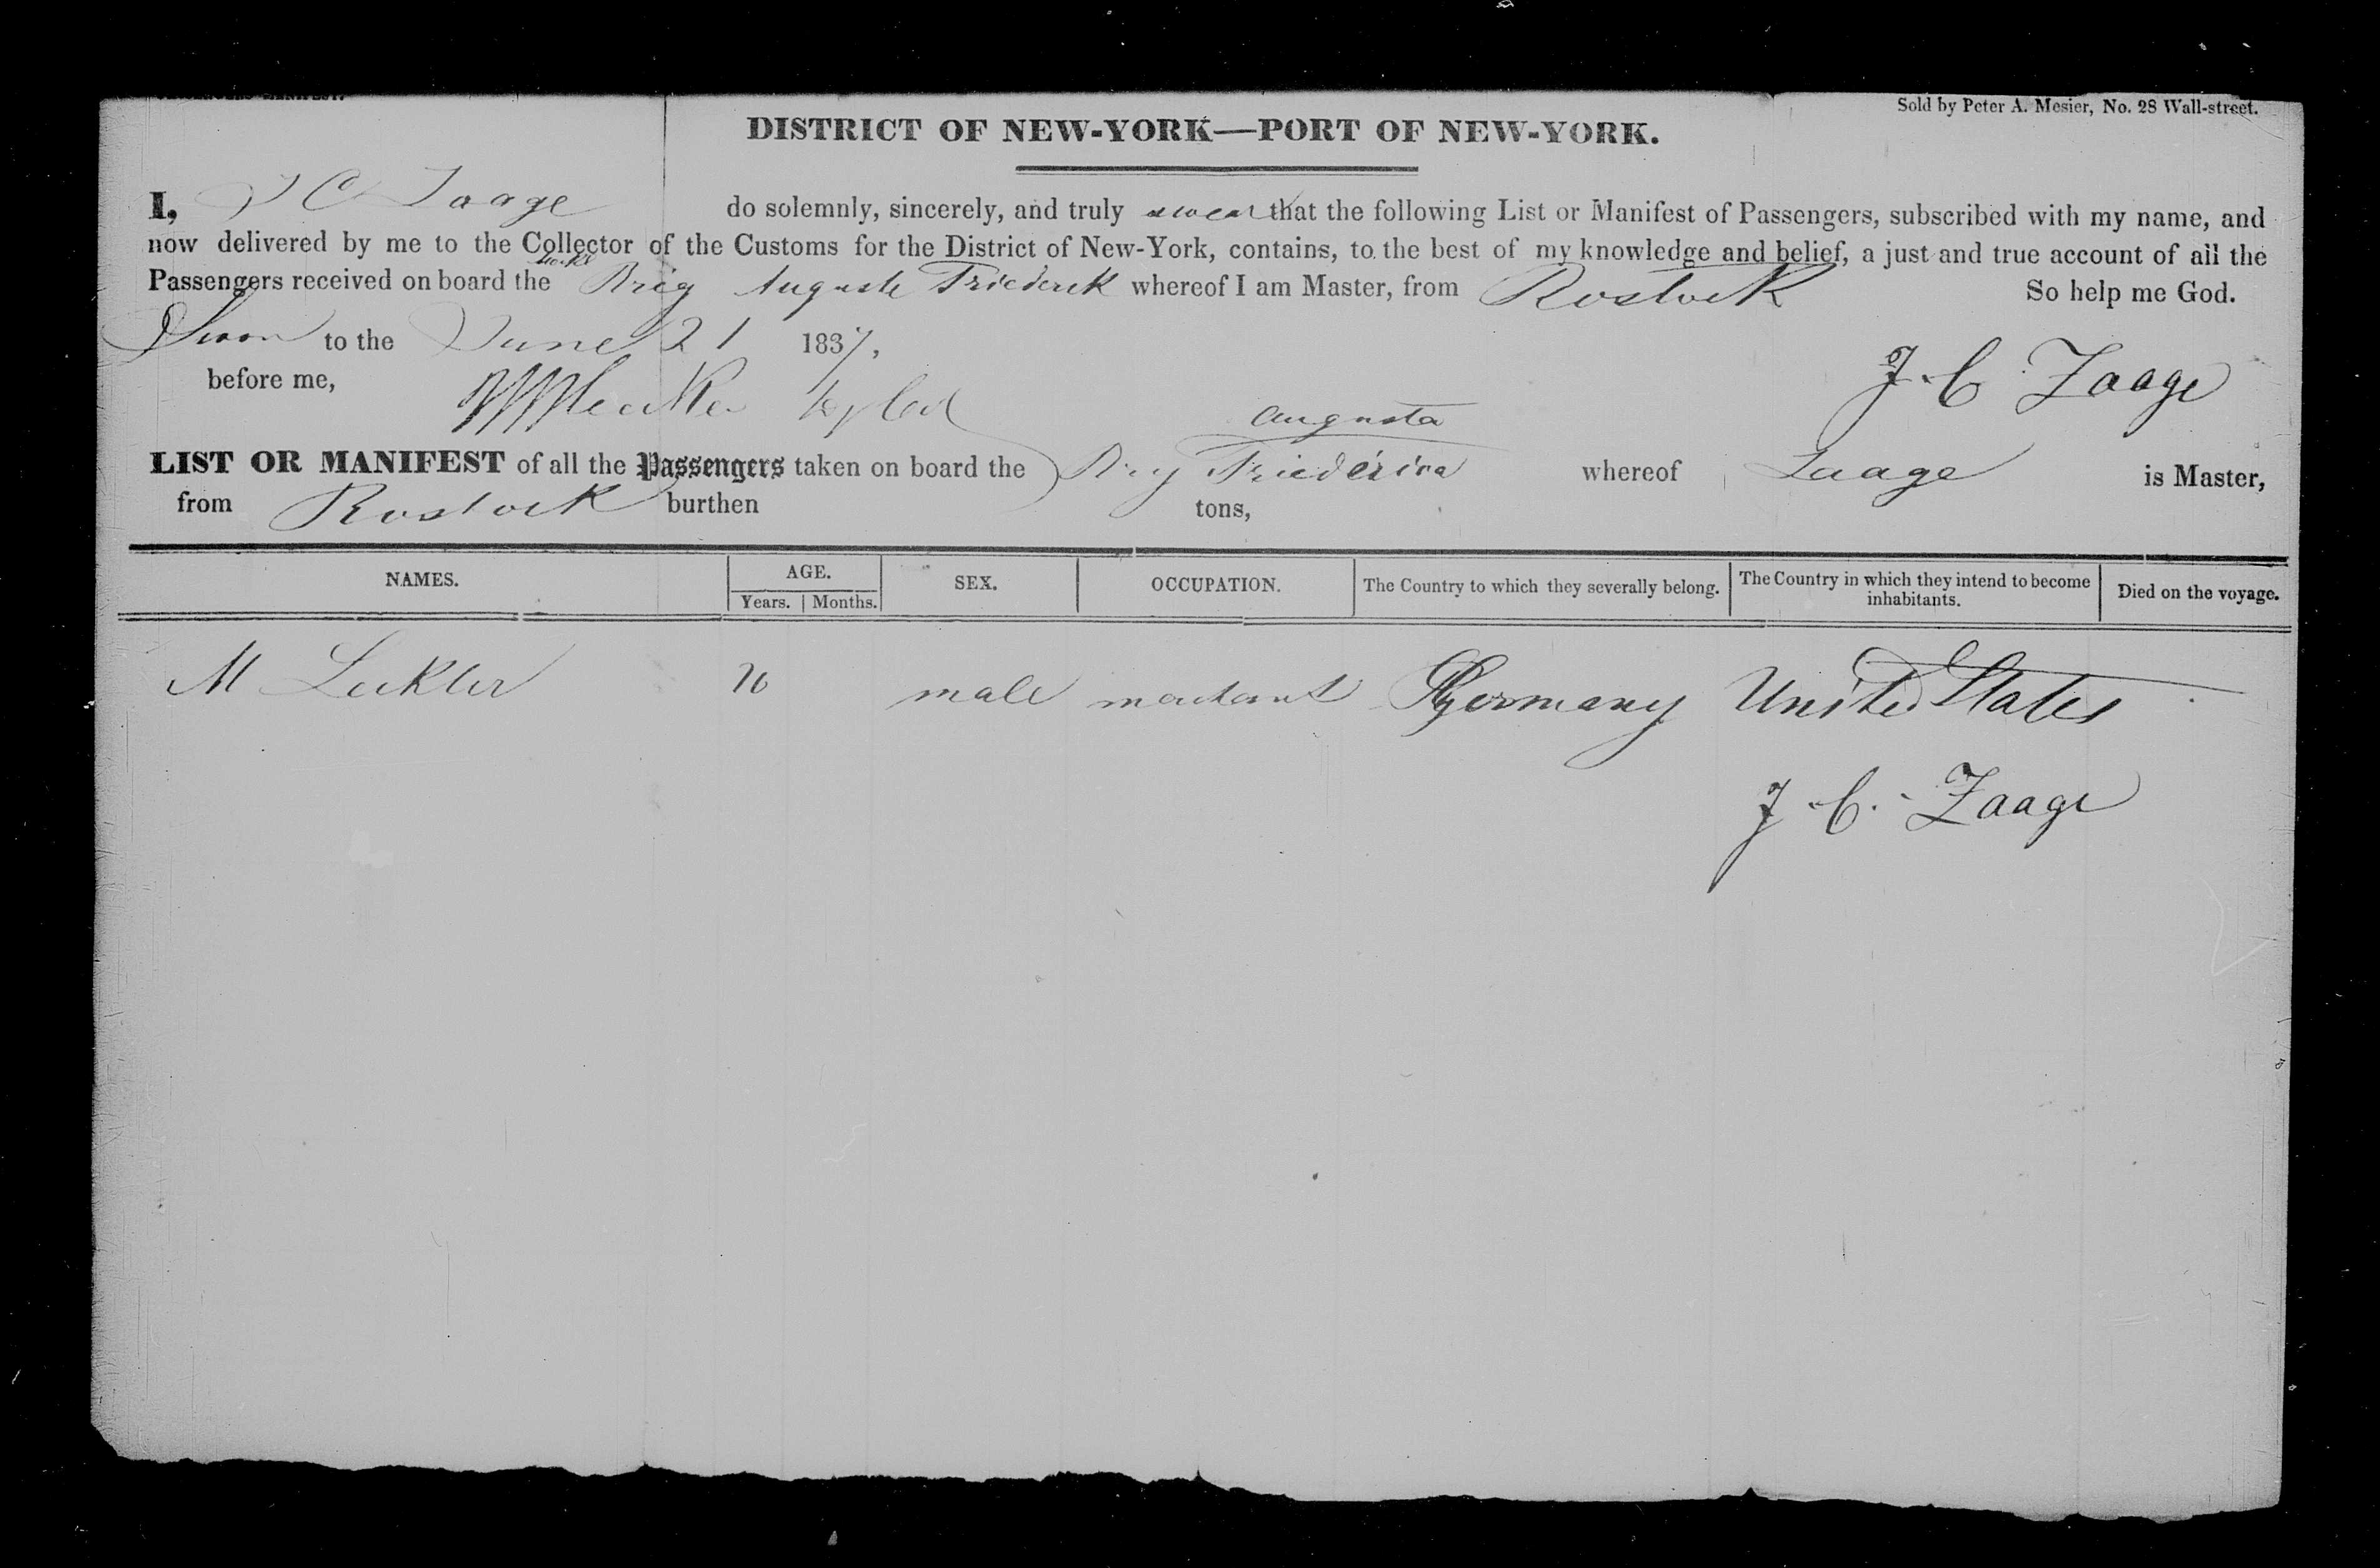 Sold by Peter A. Mesier, No. 28 Wall-street.
DISTRICT OF NEW-YORK—PORT OF NEW-YORK.
I, J C Zaage do solemnly, sincerely, and truly swear that the following List or Manifest of Passengers, subscribed with my name, and
now delivered by me to the Collector of the Customs for the District of New-York, contains, to the best of my knowledge and belief, a just and true account of all the
Passengers received on board the Brig Auguste Friederik whereof I am Master, from Rostock So help me God.
Sworn to the June 21 1837,
before me,
J. C Zaage
Augusta
LIST OR MANIFEST of all the Passengers taken on board the Brig Friederica whereof Zaage is Master,
from Rostock burthen tons,
NAMES. AGE. SEX. OCCUPATION. The Country to which they severally belong. The Country in which they intend to become inhabitants. Died on the voyage.
Years. Months.
M male merchant Germany United States
J. C. Zaage